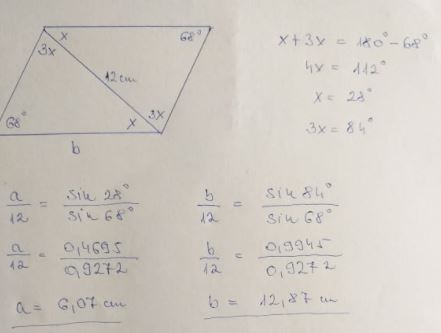 x 68°
3x
12 cm
68° x 3x
b
x + 3x = 180° - 68°
4x = 112°
x = 28°
3x = 84°
a/12 = sin 28°/sin 68°
a/12 = 0,4695/0,9272
a = 6,07 cm
b/12 = sin 84°/sin 68°
b/12 = 0,9945/0,9272
b = 12,87 cm